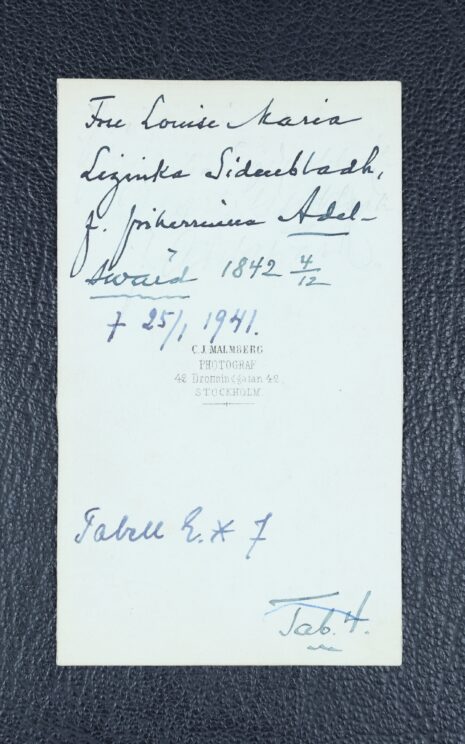 Fru Louise Maria
Lizinka Sidenbladh,
f. friherrinna Adel-
swärd 1842 4/12
† 25/1 1941.
C. J. MALMBERG
PHOTOGRAF
42 Drottninggatan 42
STOCKHOLM
Tabell
Tab. 4.